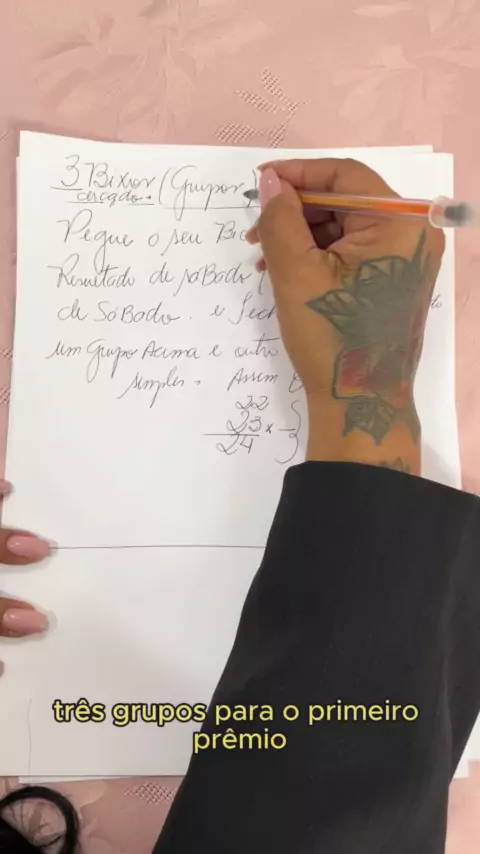 3 Bixos (Grupos)
cercado.
Pegue o seu Bic
Resultado de sáBado (
de SáBado. e
um Grupo Acima e outro
simples. Assim
22
23 x
24 3
três grupos para o primeiro
prêmio